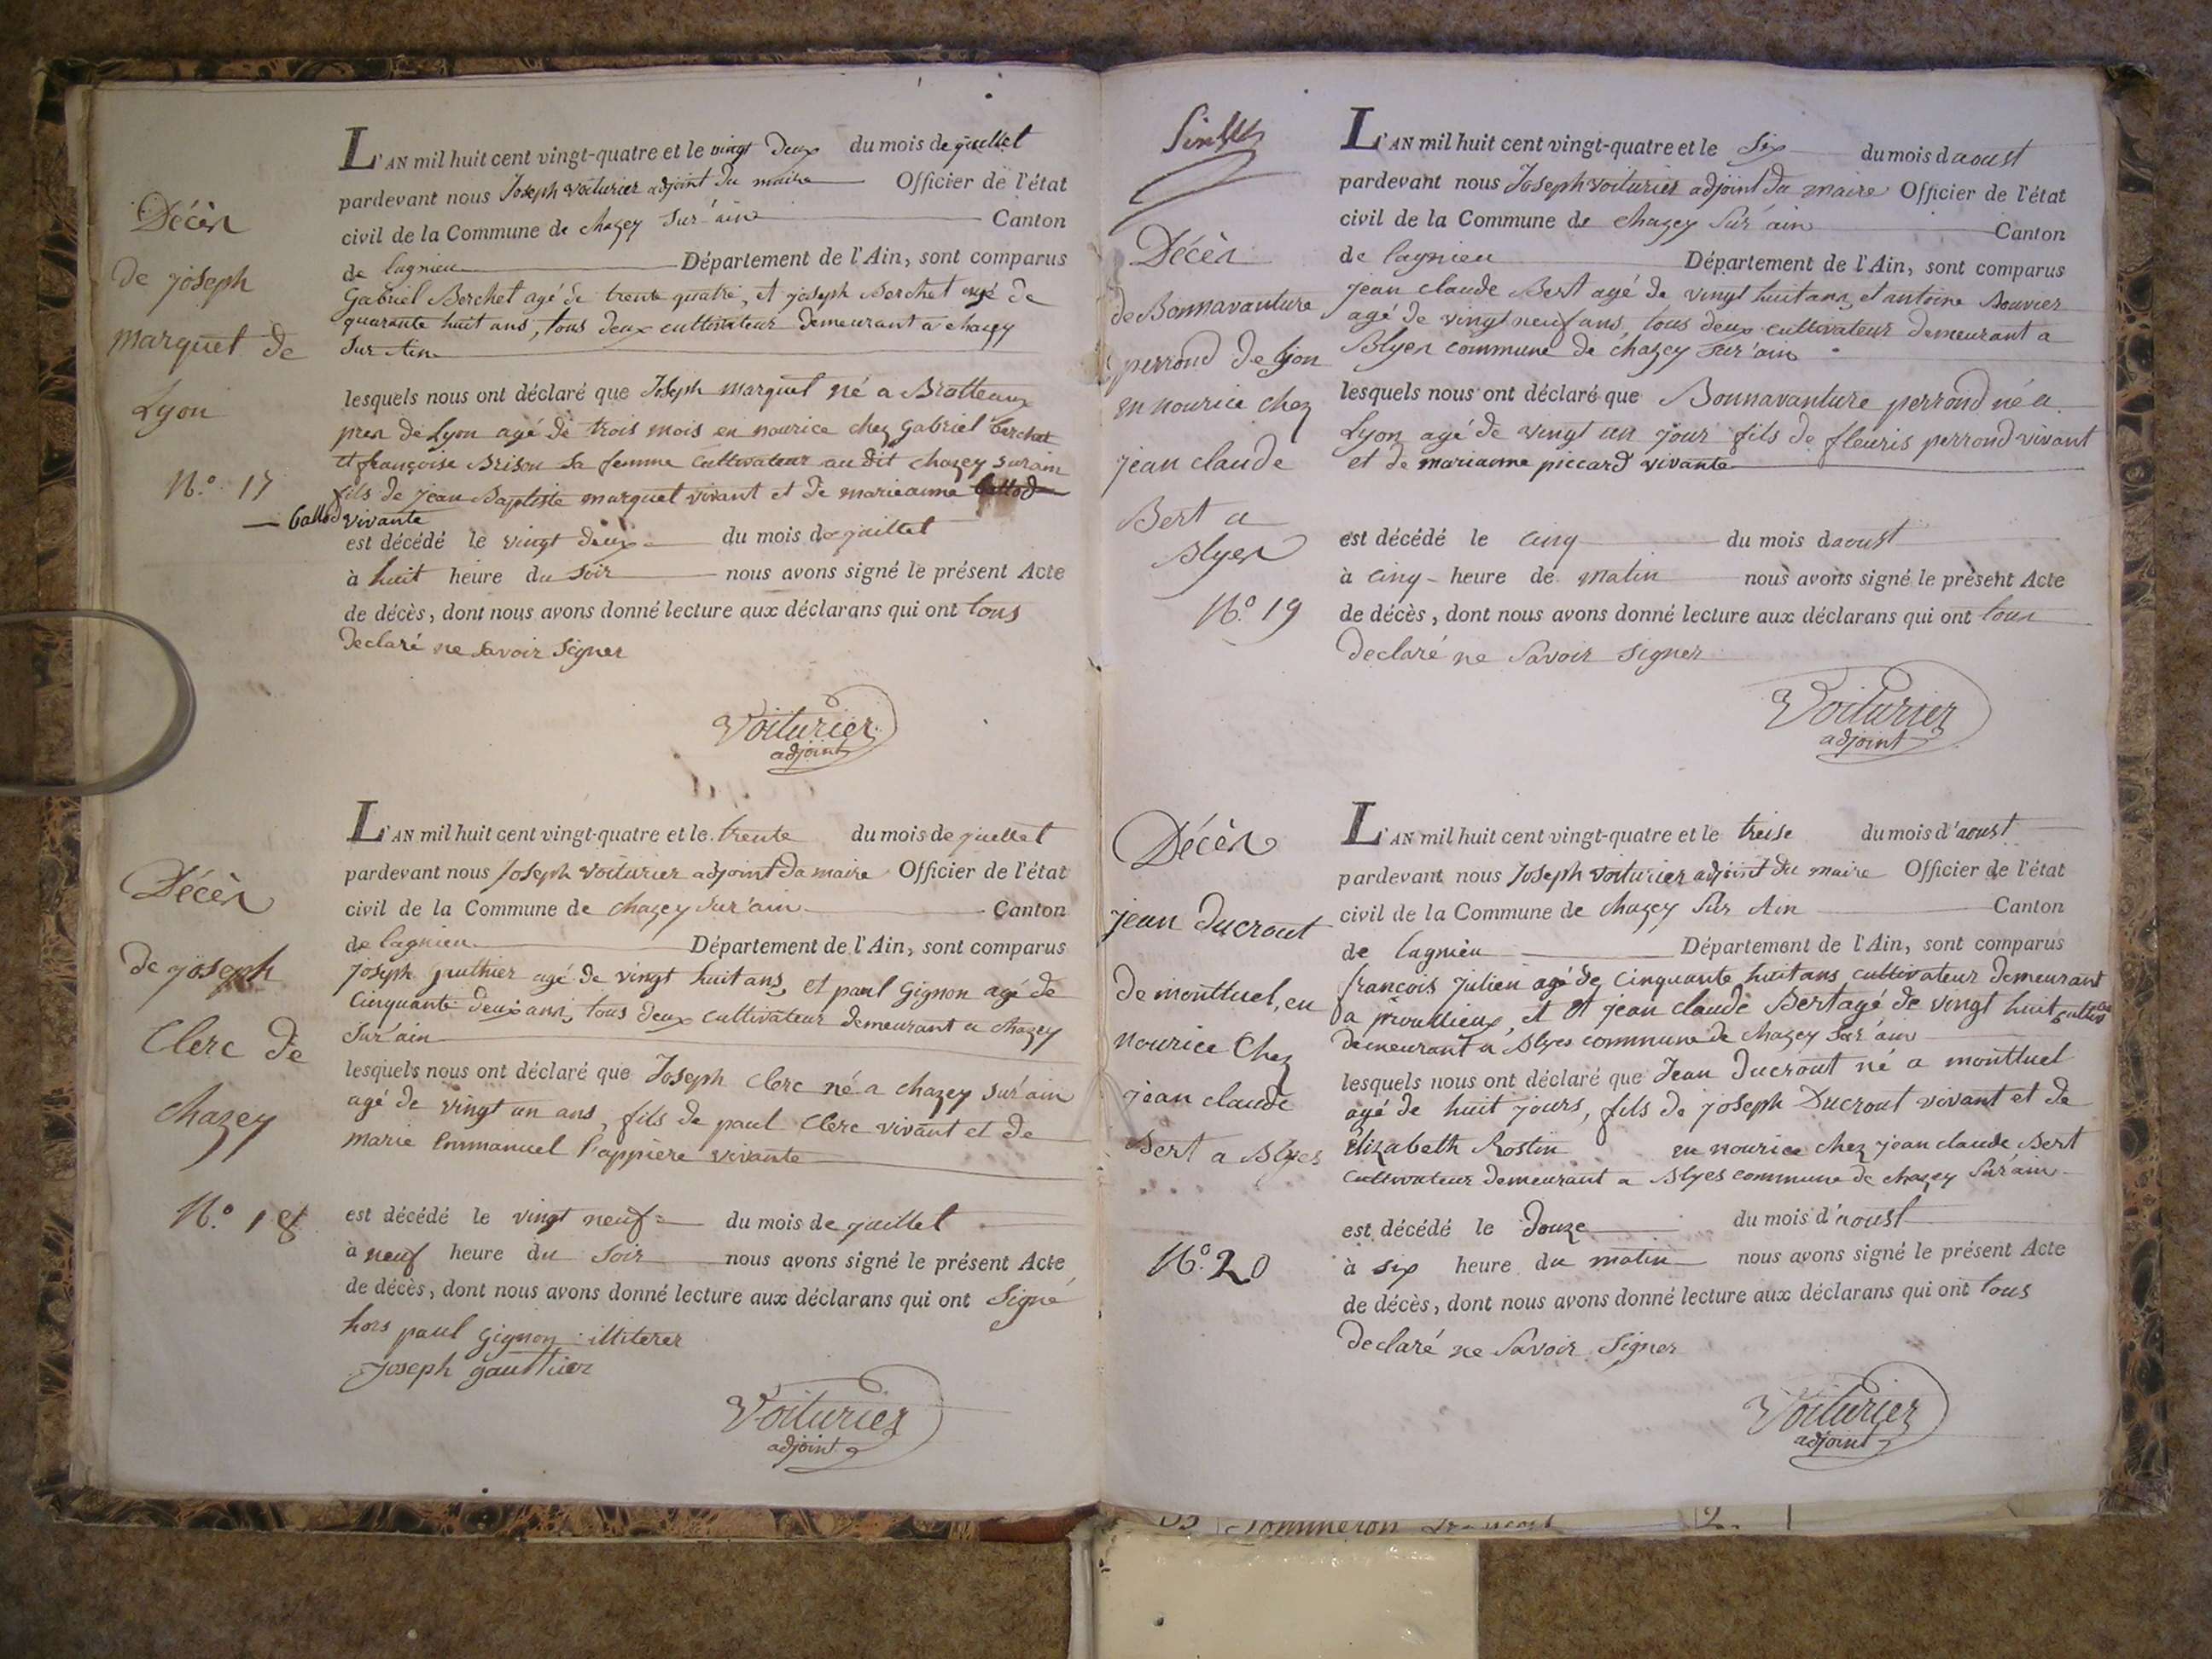 Décès
de joseph
marquet de
Lyon
N.o 17
L'AN mil huit cent vingt-quatre et le vingt deux du mois de juillet
pardevant nous Joseph Voiturier adjoint du maire Officier de l'état
civil de la Commune de chazey sur'ain Canton
de lagnieu Département de l'Ain, sont comparus
Gabriel Berchet agé de trente quatre, et joseph Berchet agé de
quarante huit ans, tous deux cultivateur demeurant a chazey
sur Ain
lesquels nous ont déclaré que Joseph marquet né a Brotteaux
pres de Lyon agé de trois mois en nourice chez Gabriel berchet
et françoise Brison sa femme cultivateur au dit chazey surain
fils de jean Baptiste marquet vivant et de marieanne
vivante
est décédé le vingt deux du mois de juillet
à huit heure du soir nous avons signé le présent Acte
de décès, dont nous avons donné lecture aux déclarans qui ont tous
declaré ne savoir signer
Voiturier
adjoint
Décès
de joseph
Clerc de
chazey
N.o 18
L'AN mil huit cent vingt-quatre et le trente du mois de juillet
pardevant nous Joseph Voiturier adjoint du maire Officier de l'état
civil de la Commune de chazey sur'ain Canton
de lagnieu Département de l'Ain, sont comparus
joseph gauthier agé de vingt huit ans, et paul Gignon agé de
Cinquante deux ans, tous deux cultivateur demeurant a chazey
sur'ain
lesquels nous ont déclaré que Joseph Clerc né a chazey sur'ain
agé de vingt un ans, fils de paul Clerc vivant et de
marie Emmanuel vivante
est décédé le vingt neuf du mois de juillet
à neuf heure du soir nous avons signé le présent Acte
de décès, dont nous avons donné lecture aux déclarans qui ont signé
hors paul Gignon illiterer
joseph gauthier
Voiturier
adjoint
Décès
de Bonnavanture
perrond de lyon
en nourice chez
jean claude
Bert a
Blyes
N.o 19
L'AN mil huit cent vingt-quatre et le six du mois d aoust
pardevant nous Joseph voiturier adjoint du maire Officier de l'état
civil de la Commune de chazey sur'ain Canton
de lagnieu Département de l'Ain, sont comparus
jean claude Bert agé de vingt huit ans, et antoine Bouvier
agé de vingt neuf ans, tous deux cultivateur demeurant a
Blyes commune de chazey sur'ain
lesquels nous ont déclaré que Bonnavanture perrond né a
Lyon agé de vingt un jour fils de fleuris perrond vivant
et de marianne piccard vivante
est décédé le cinq du mois d aoust
à cinq heure de matin nous avons signé le présent Acte
de décès, dont nous avons donné lecture aux déclarans qui ont tous
declaré ne savoir signer
Voiturier
adjoint
Décès
jean ducrout
de montluel, en
nourice Chez
jean claude
Bert a Blyes
N.o 20
L'AN mil huit cent vingt-quatre et le treise du mois d'aoust
pardevant nous Joseph voiturier adjoint du maire Officier de l'état
civil de la Commune de chazey sur Ain Canton
de lagnieu Département de l'Ain, sont comparus
francois julien agé de cinquante huit ans cultivateur demeurant
a et jean claude Bert agé de vingt huit
demeurant a Blyes commune de chazey sur'ain
lesquels nous ont déclaré que Jean Ducrout né a montluel
agé de huit jours, fils de joseph Ducrout vivant et de
Elizabeth Rostin en nourice chez jean claude Bert
cultivateur demeurant a Blyes commune de chazey sur'ain
est décédé le douze du mois d'aoust
à six heure du matin nous avons signé le présent Acte
de décès, dont nous avons donné lecture aux déclarans qui ont tous
declaré ne savoir signer
Voiturier
adjoint